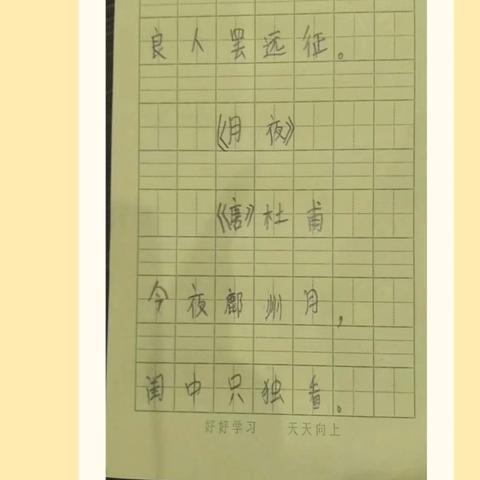 良人罢远征。
《月夜》
《唐》杜甫
今夜鄜州月，
闺中只独看。
好好学习 天天向上